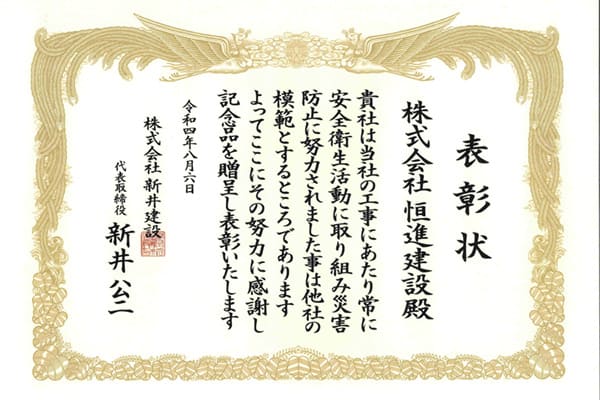 表彰状
株式会社 恒進建設殿
貴社は当社の工事にあたり常に
安全衛生活動に取り組み災害
防止に努力されました事は他社の
模範とするところであります
よってここにその努力に感謝し
記念品を贈呈し表彰いたします
令和四年八月六日
株式会社 新井建設
代表取締役 新井公二